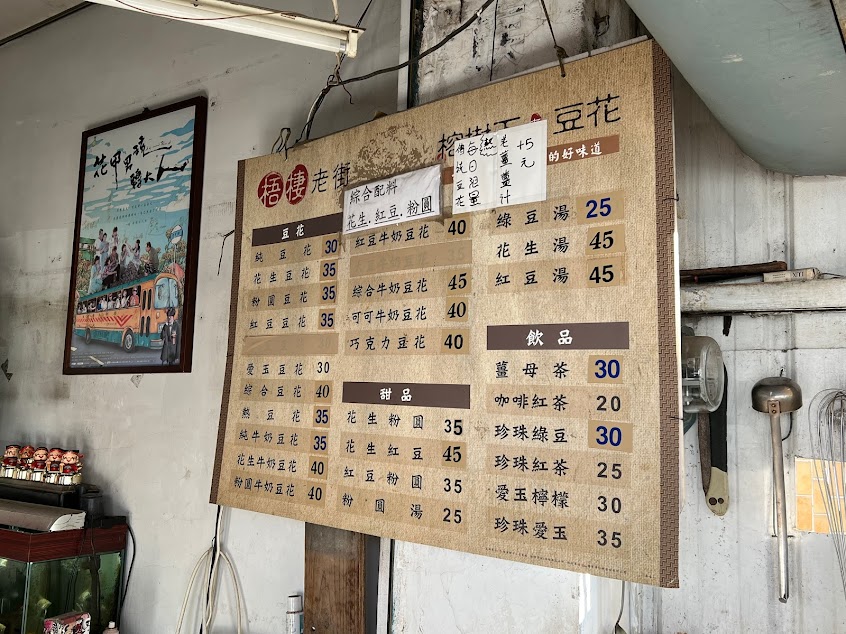 梧棲老街
豆花
的好味道
綜合配料
花生.紅豆.粉圓
老薑薑汁
+5元
豆花
純豆花 30
花生豆花 35
粉圓豆花 35
紅豆豆花 35
愛玉豆花 30
綜合豆花 40
熱豆花 35
純牛奶豆花 35
花生牛奶豆花 40
粉圓牛奶豆花 40
紅豆牛奶豆花 40
綜合牛奶豆花 45
可可牛奶豆花 40
巧克力豆花 40
甜品
花生粉圓 35
花生紅豆 45
紅豆粉圓 35
粉圓湯 25
綠豆湯 25
花生湯 45
紅豆湯 45
飲品
薑母茶 30
咖啡紅茶 20
珍珠綠豆 30
珍珠紅茶 25
愛玉檸檬 30
珍珠愛玉 35